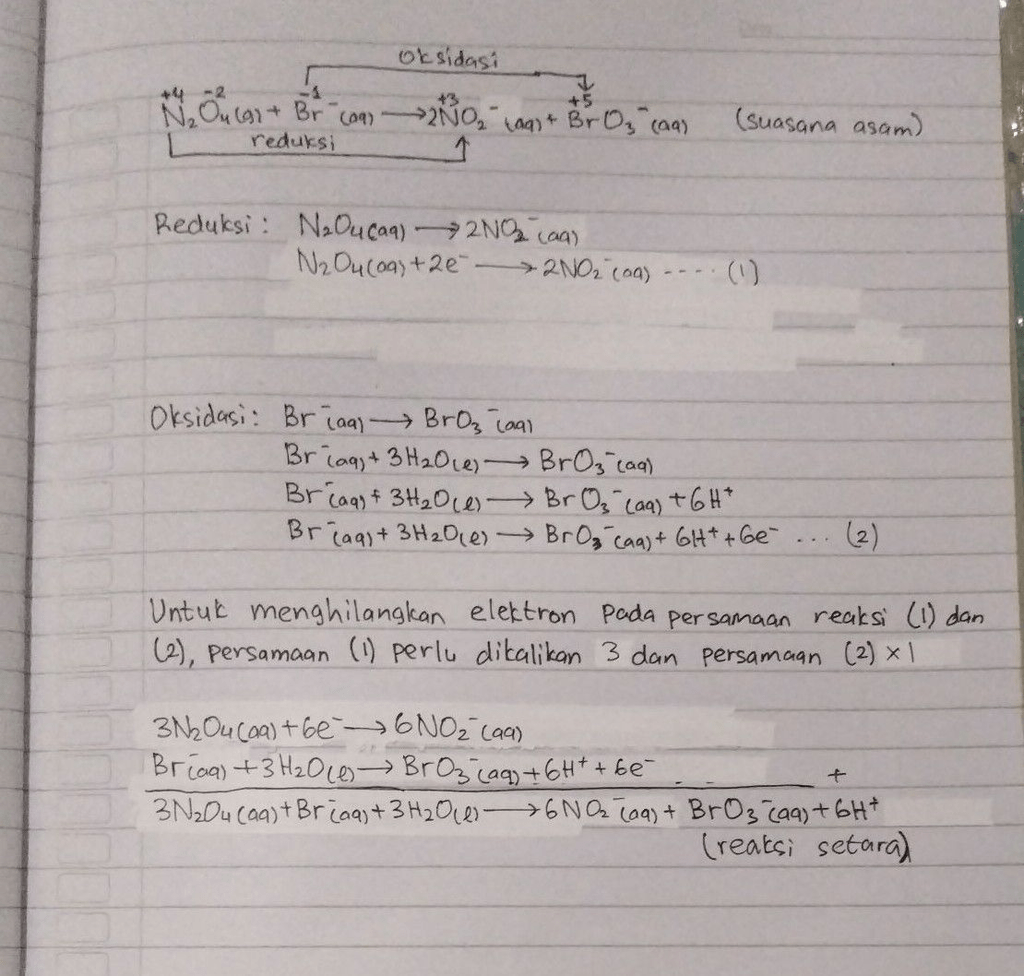 Oksidasi
+4 -2 -1 +3 +5
N₂O₄(g) + Br⁻(aq) → 2NO₂⁻(aq) + BrO₃⁻(aq) (suasana asam)
reduksi
Reduksi: N₂O₄(aq) → 2NO₂⁻(aq)
N₂O₄(aq) + 2e⁻ → 2NO₂⁻(aq) ---- (1)
Oksidasi: Br⁻(aq) → BrO₃⁻(aq)
Br⁻(aq) + 3H₂O(l) → BrO₃⁻(aq)
Br⁻(aq) + 3H₂O(l) → BrO₃⁻(aq) + 6H⁺
Br⁻(aq) + 3H₂O(l) → BrO₃⁻(aq) + 6H⁺ + 6e⁻ ... (2)
Untuk menghilangkan elektron pada persamaan reaksi (1) dan
(2), persamaan (1) perlu dikalikan 3 dan persamaan (2) ×1
3N₂O₄(aq) + 6e⁻ → 6NO₂⁻(aq)
Br⁻(aq) + 3H₂O(l) → BrO₃⁻(aq) + 6H⁺ + 6e⁻ +
3N₂O₄(aq) + Br⁻(aq) + 3H₂O(l) → 6NO₂⁻(aq) + BrO₃⁻(aq) + 6H⁺
(reaksi setara)